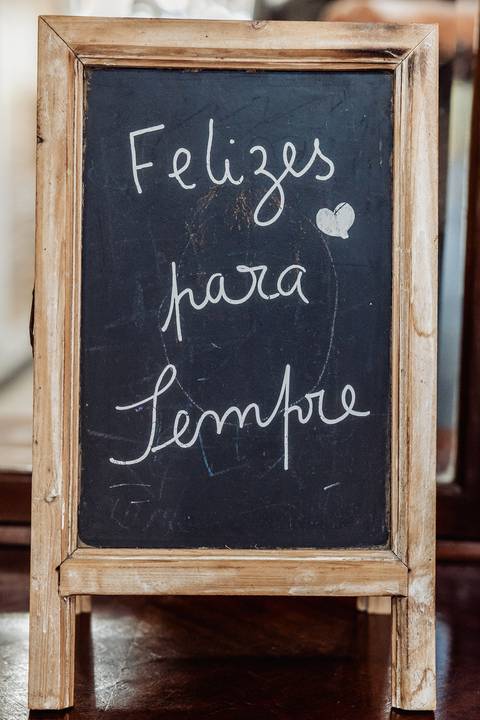 Felizes
para
Sempre